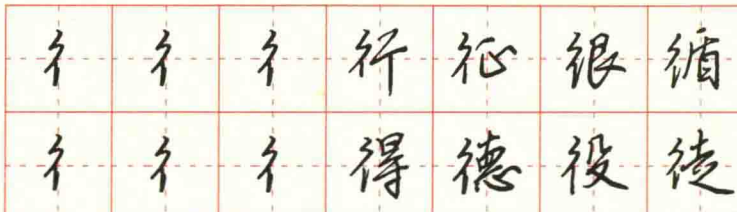 彳 彳 彳 行 征 很 循
彳 彳 彳 得 德 役 徒